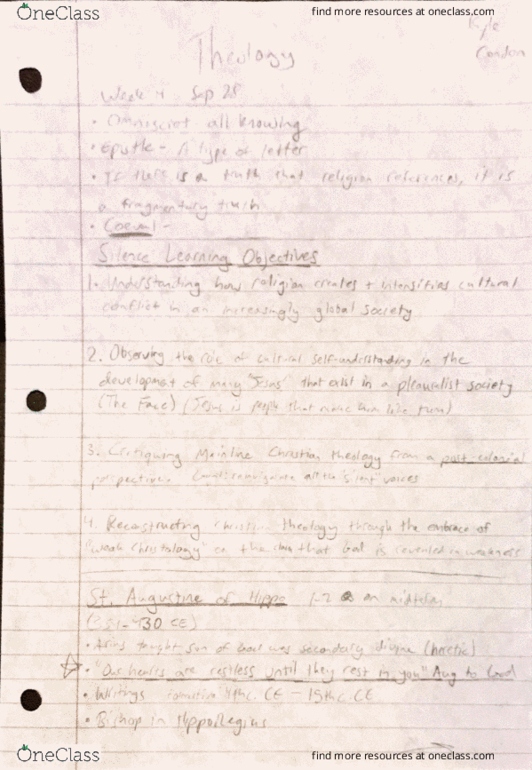 OneClass
find more resources at oneclass.com
Kyle
Condon
Theology
Week 4 Sep 28
• Omnisciet all knowing
• Epistle - A type of letter
• If there is a truth that religion references, it is
a fragmentary truth
• Coeval -
Silence Learning Objectives
1. Understanding how religion creates + intensifies cultural
conflict in an increasingly global society
2. Observing the role of cultural self-understanding in the
development of many "Jesus" that exist in a pleauralist society
(The Face) (Jesus is people that make him like them)
3. Critiquing Mainline Christian theology from a post-colonial
perspective all the voices
4. Reconstructing christian theology through the embrace of
"weak christology" on the idea that God is revealed in weakness
St. Augustine of Hippo 1-2 on midterm
(354-430 CE)
• Arius taught son of God was secondary divine (heretic)
"Our hearts are restless until they rest in you" Aug to God
• Writings 4th c. CE - 15th c. CE
• Bishop in Hippo Regius
OneClass
find more resources at oneclass.com